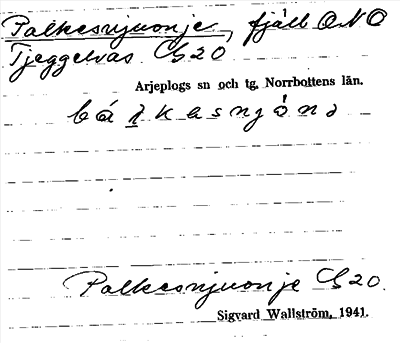 Palkesnjuonje, fjäll ONO
Tjeggelvas G20
Arjeplogs sn och tg, Norrbottens län.
Palkesnjuonje G20.
Sigvard Wallström, 1941.